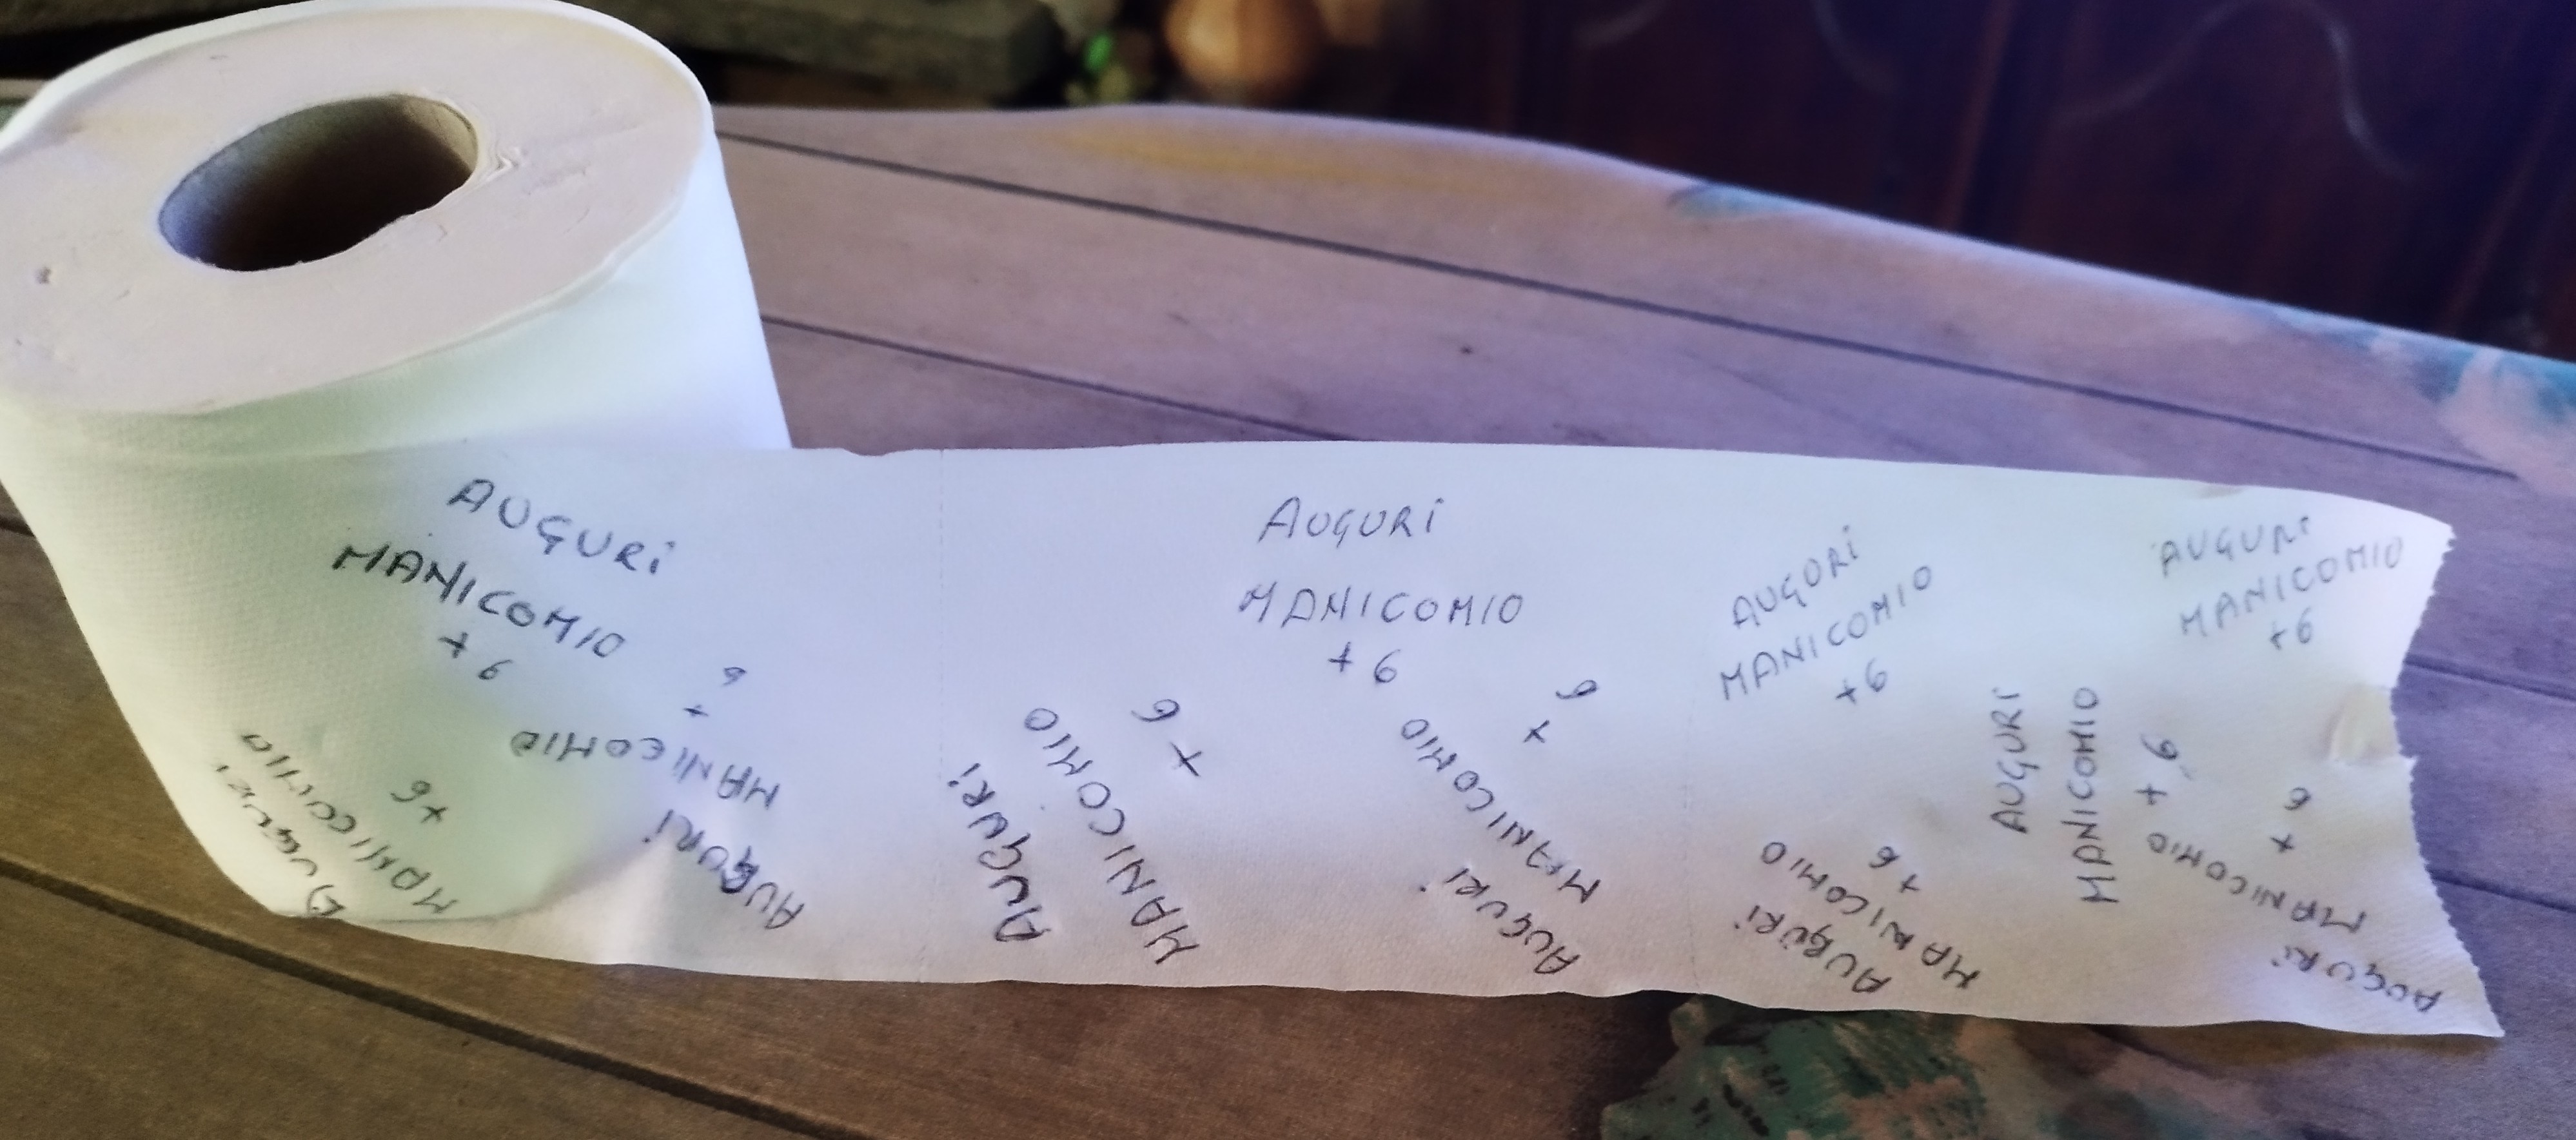 AUGURi
MANICOMIO
+ 6
AUGURi
MANICOMIO
+ 6
AUGURi
MANICOMIO
+
6
AUGURi
MANICOMIO
+ 6
AUGURi
MANICOMIO
+ 6
AUGURi
MANICOMIO
+
6
AUGURi
MANICOMIO
+6
AUGURi
MANICOMIO
+ 6
AUGURi
MANICOMIO
+ 6
AUGURi
MANICOMIO
+6
AUGURi
MANICOMIO
+
6